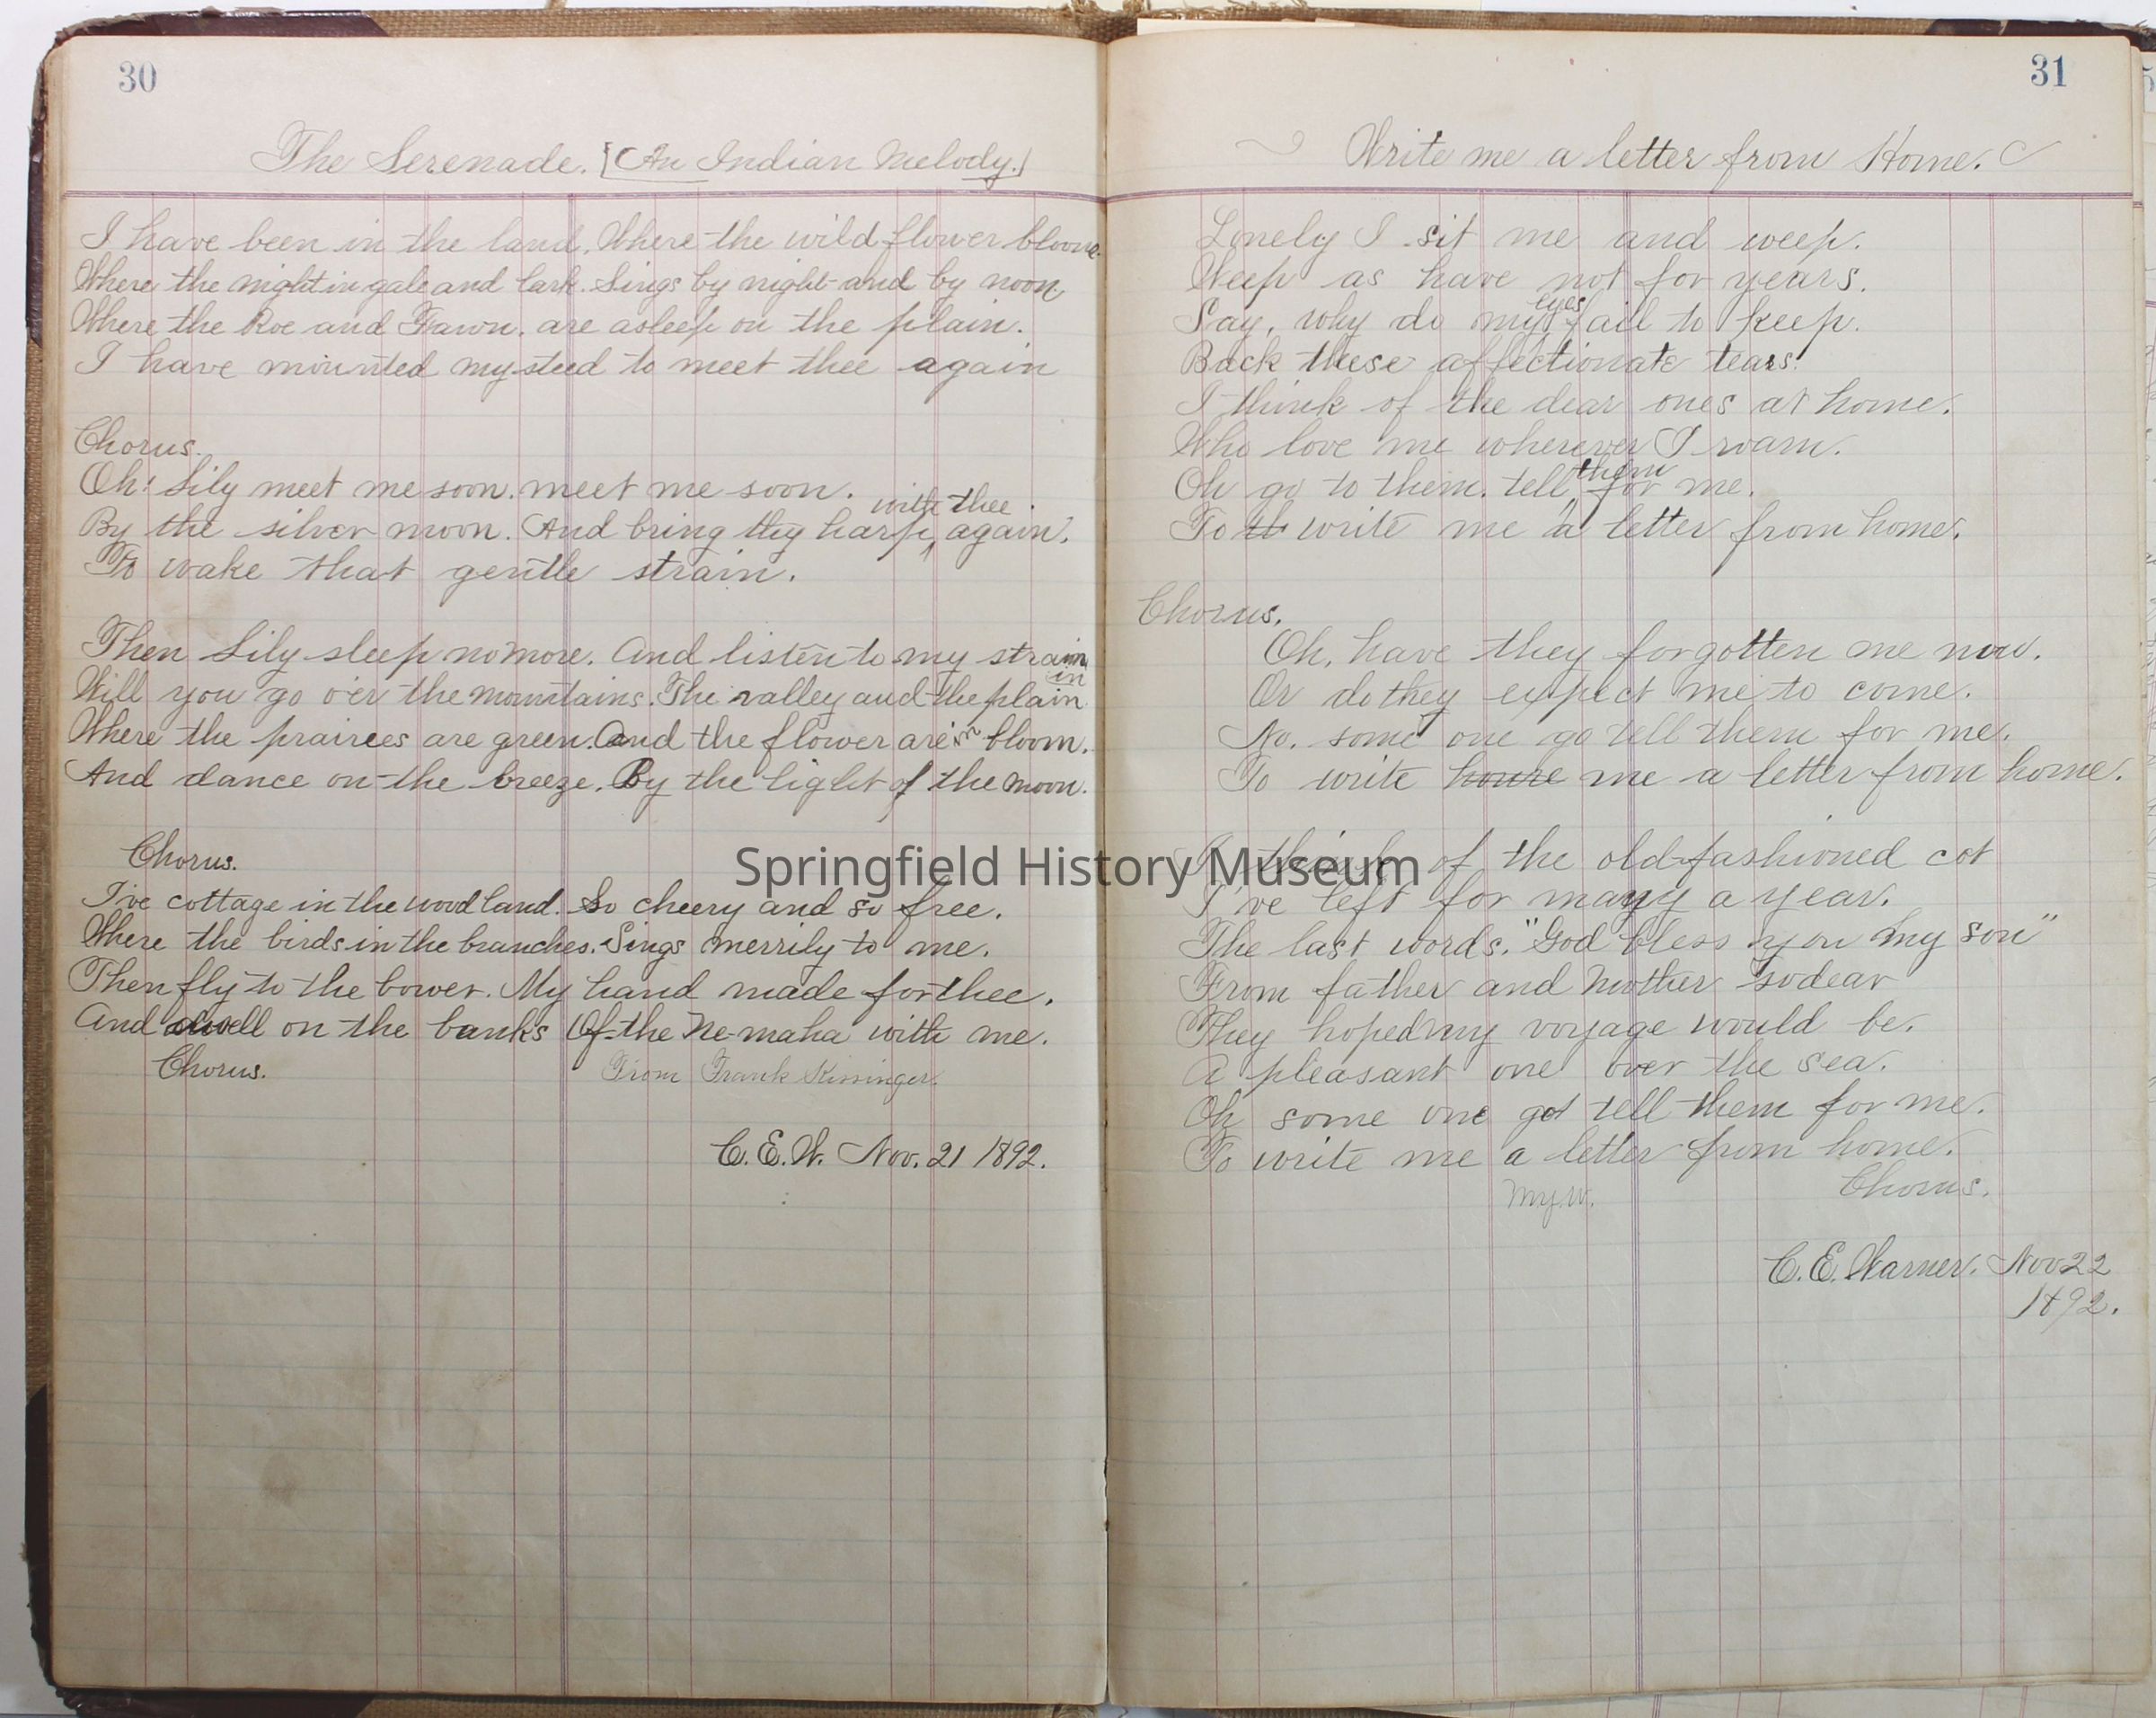 30
The Serenade. [(An Indian Melody.)
I have been in the land. Where the wild flower bloom.
Where the nightingale and lark. Sings by night and by noon.
Where the Roe and Fawn. are asleep on the plain.
I have mounted my steed to meet thee again
Chorus.
Oh! Lily meet me soon. meet me soon.
with thee
By the silver moon. And bring thy harp, again.
To wake that gentle strain.
Then Lily sleep no more. And listen to my strain
in
Will you go o'er the mountains. The valley and the plain
Where the prairies are green. And the flower are in bloom.
And dance on the breeze. By the light of the moon.
Chorus.
I've cottage in the woodland. So cheery and so free.
Where the birds in the branches. Sings merrily to me.
Then fly to the bower. My hand made for thee.
And dwell on the banks Of the Ne-maha with me.
Chorus.
From Frank
C.E.W. Nov. 21 1892.
31
Write me a letter from Home.
Lonely I sit me and weep.
Weep as have not for years.
eyes
Say, why do my fail to keep.
Back these affectionate tears.
I think of the dear ones at home.
Who love me wherever I roam.
them
Oh go to them. tell, for me.
To th write me a letter from home.
Chorus.
Oh, have they forgotten me now.
Or do they expect me to come.
No. some one go tell them for me.
To write home me a letter from home.
I think of the old-fashioned cot
I've left for many a year.
The last words. "God bless you my son"
From father and mother so dear
They hoped my voyage would be.
A pleasant one over the sea.
Oh some one go tell them for me.
To write me a letter from home.
Chorus.
C.E. Warner. Nov 22
1892.
Springfield History Museum